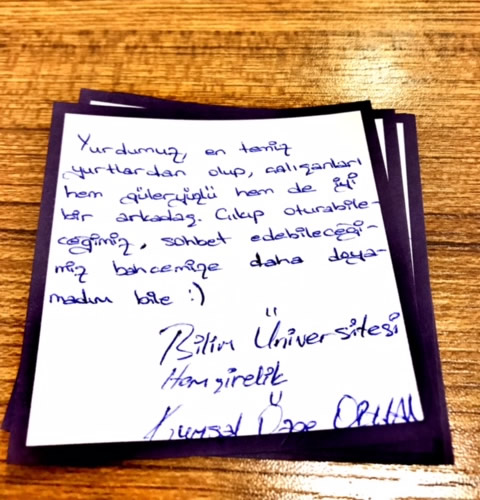 Yurdumuz, en temiz
yurtlardan olup, calışanları
hem güleryüzlü hem de iyi
bir arkadaş. Cıkıp oturabile-
ceğimiz, sohbet edebileceği-
miz bahcemize daha doya-
madım bile :)
Bilim Üniversitesi
Hemşirelik
Kumsal Özge ORHAN